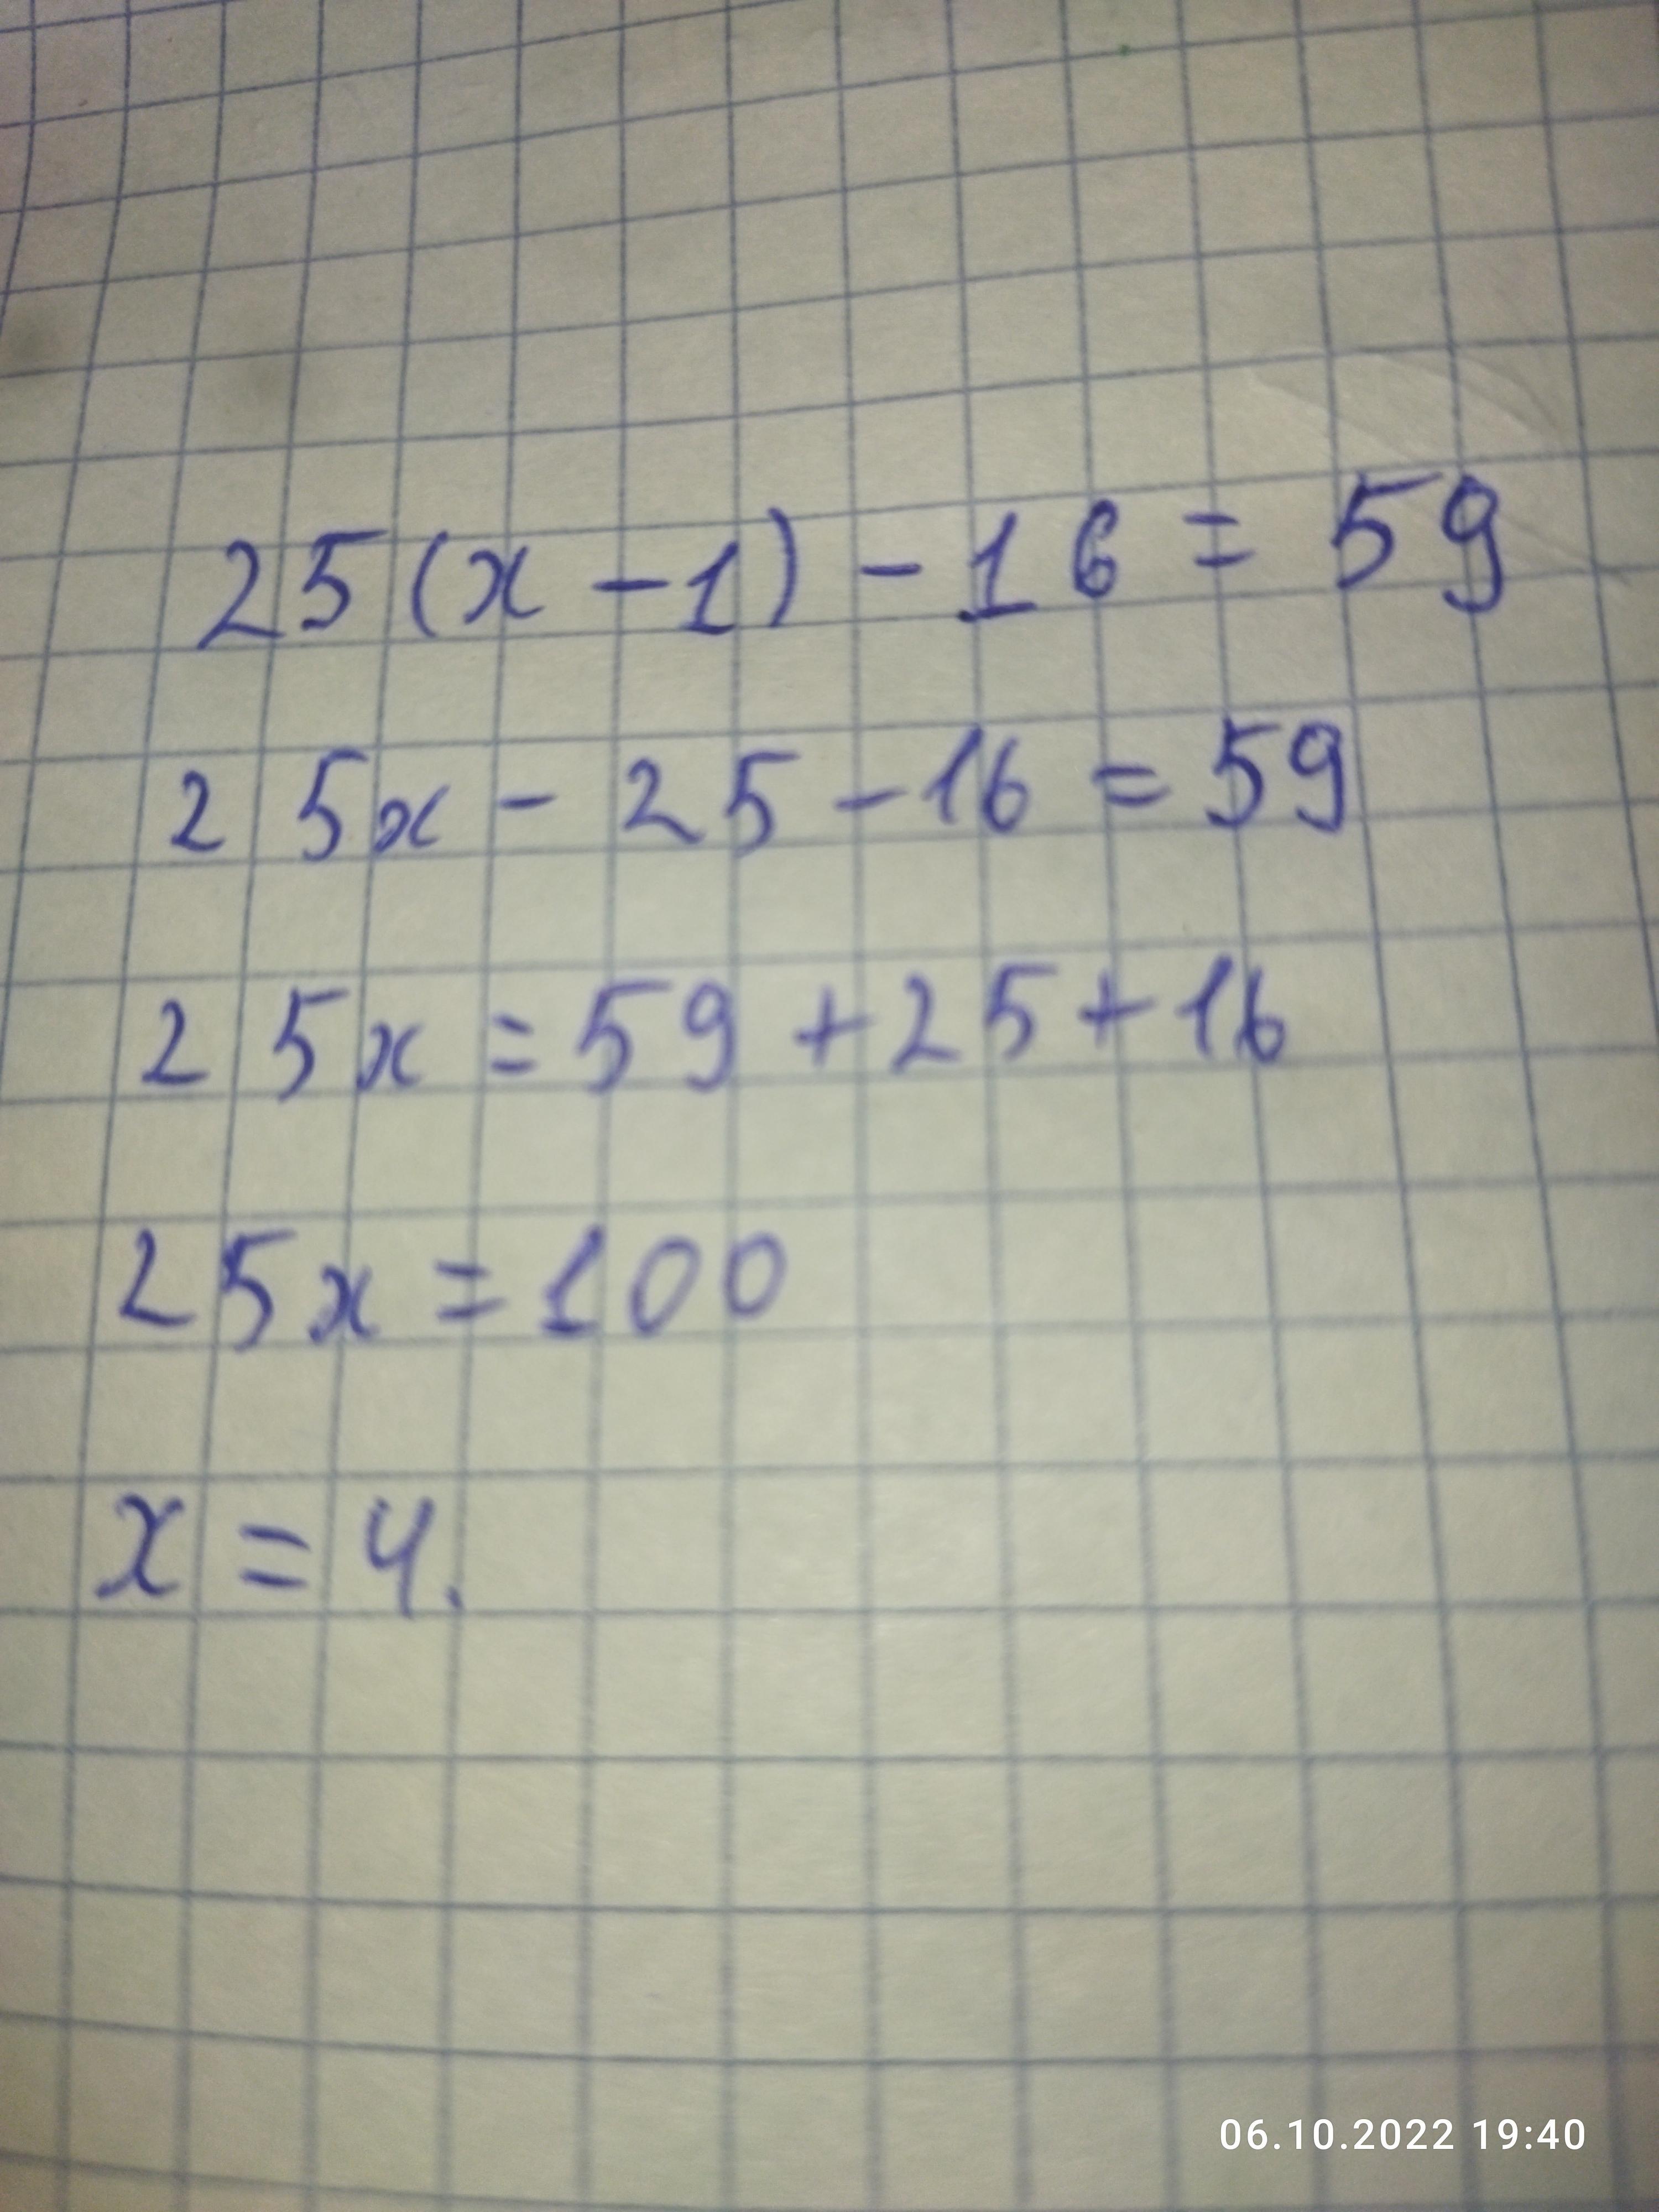 25(x-1)-16=59
25x-25-16=59
25x=59+25+16
25x=100
x=4.
06.10.2022 19:40